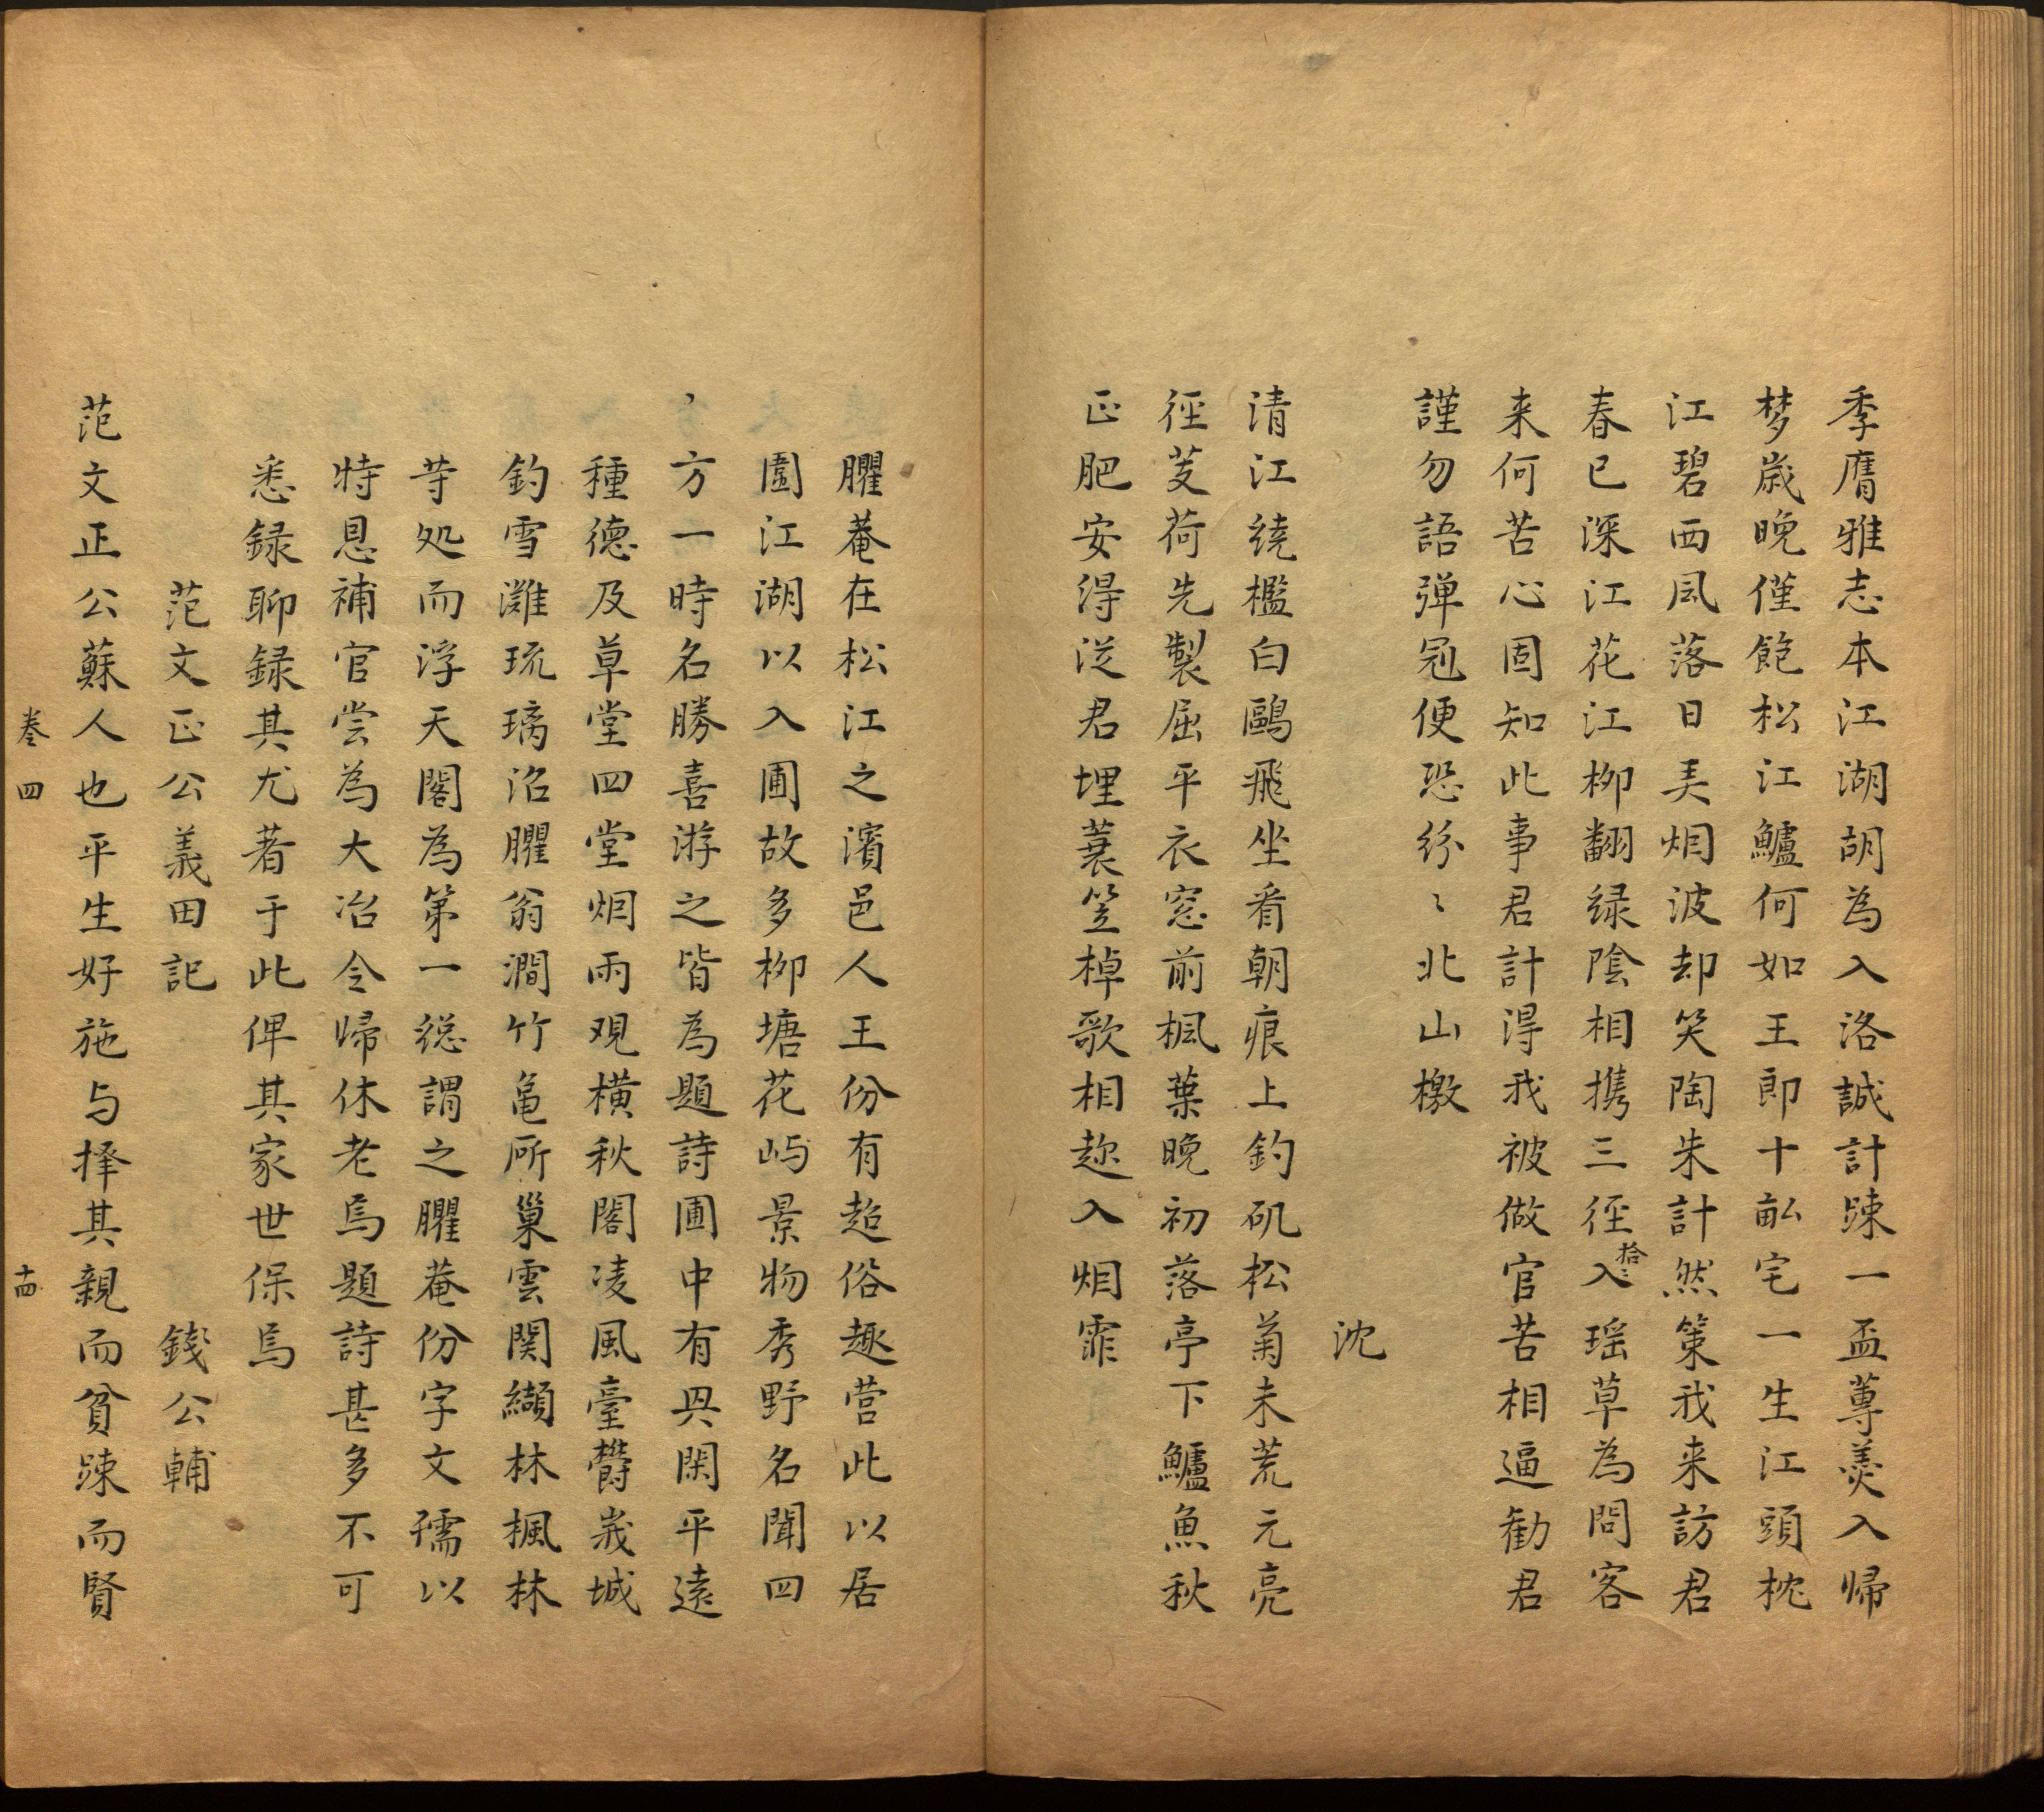 季膺雅志本江湖胡為入洛誠計踈一盃蓴羮入帰
梦歳晚僅飽松江鱸何如王郎十畆宅一生江頭枕
江碧西風落日美烟波却笑陶朱計然策我来訪君
春已深江花江柳翻緑陰相携三径入瑶草為問客
拾
来何苦心固知此事君計淂我被做官苦相逼勧君
謹勿語弾冠便恐紛〻北山檄
沈
清江繞檻白鷗飛坐看朝痕上釣矶松菊未荒元亮
徑芰荷先製屈平衣窓前楓葉晚初落亭下鱸魚秋
正肥安得従君埋蓑笠棹歌相趂入烟霏
臞菴在松江之濱邑人王份有超俗趣营此以居
園江湖以入圃故多柳塘花屿景物秀野名聞四
方一時名勝喜游之皆為題詩圃中有與閑平遠
種德及草堂四堂烟雨观横秋閣凌風臺欝峩城
釣雪灘琉璃沼臞翁澗竹亀所巢雲関纈林楓林
䓁処而浮天閣為第一緫謂之臞菴份字文孺以
特恩補官尝為大冶令帰休老焉題詩甚多不可
悉録聊録其尤者于此俾其家世保焉
范文正公義田記 錢公輔
范文正公蘇人也平生好施与择其親而貧踈而賢
卷四 十四